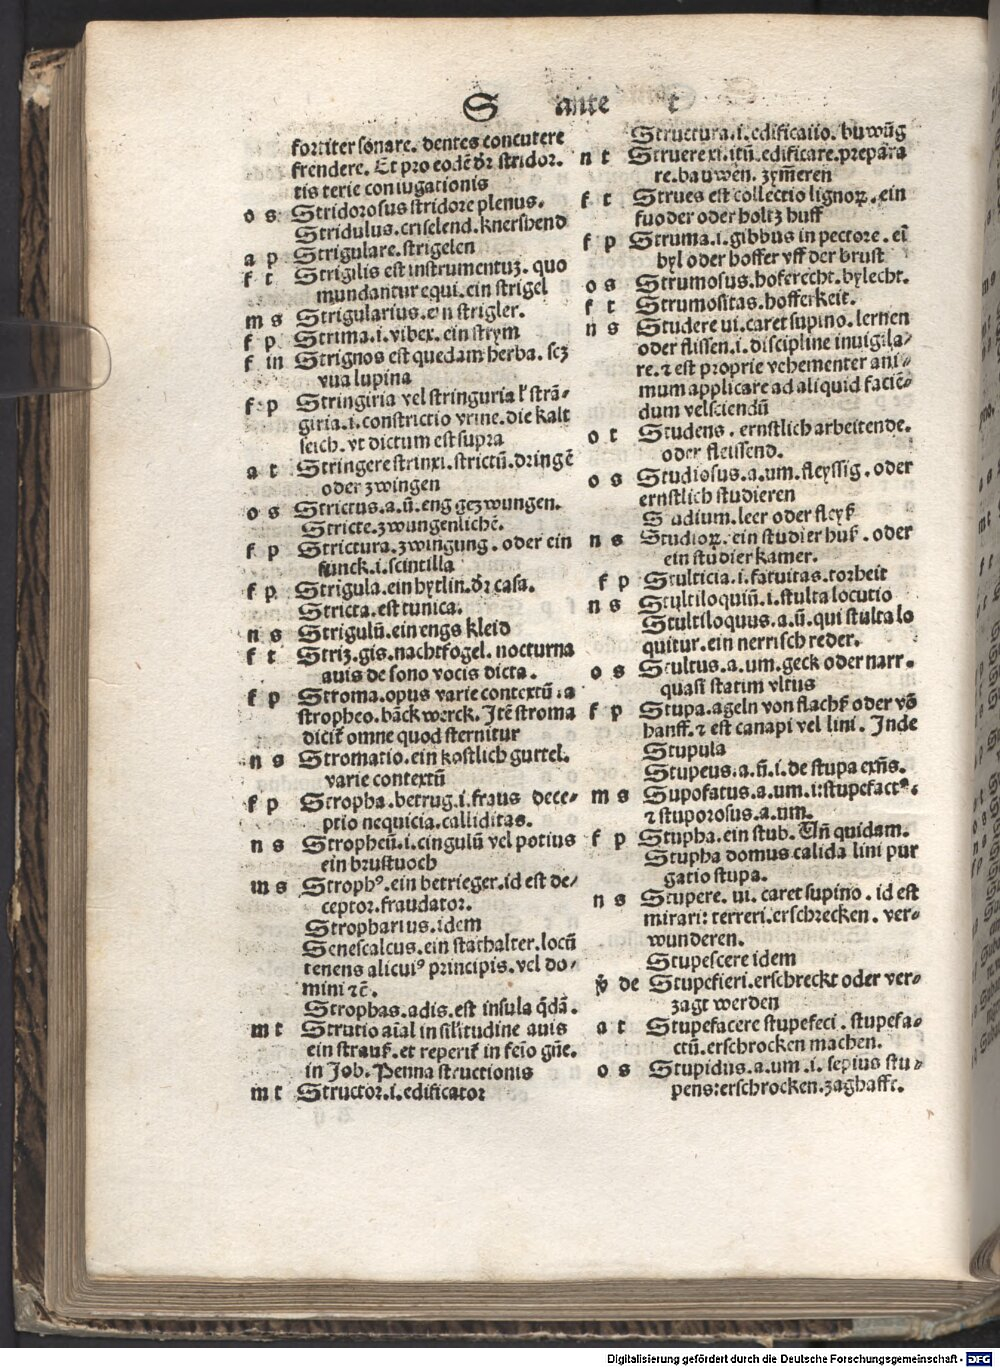 S ante t
fortiter sonare. dentes concutere
frendere. Et pro eodē dr̄ stridor.
tis tertie coniugationis
o s Stridorosus stridore plenus.
Stridulus. criselend. knershend
a p Strigulare. strigelen
f t Strigilis est instrumentuꝫ. quo
mundantur equi. ein strigel
m s Strigularius. ein strigler.
f p Strima. i. vibex. ein strym
f in Strignos est quedam herba. scꝫ
vua lupina
f p Stringiria vel stringuria lꝰ strā-
giria. i. constrictio vrine. die kalt
seich. vt dictum est supra
a t Stringere strinxi. strictū. dringē
oder zwingen
o s Strictus. a. ū. eng gezwungen.
Stricte. zwungenlichē.
f p Strictura. zwingung. oder ein
funck. i. scintilla
f p Strigula. ein hytlin. dr̄ casa.
Stricta. est tunica.
n s Strigulū. ein engs kleid
f t Strix. gis. nachtfogel. nocturna
auis de sono vocis dicta.
f p Stroma. opus varie contextū. a
stropheo. bāckwerck. Itē stroma
dicit̄ omne quod sternitur
n s Stromatio. ein kostlich gurtel.
varie contextū
f p Stropha. betrug. i. fraus dece-
ptio nequicia. calliditas.
n s Stropheū. i. cingulū vel potius
ein brustuoch
m s Strophꝰ. ein betrieger. id est de-
ceptor. fraudator.
Stropharius. idem
Senescalcus. ein stathalter. locū
tenens alicuiꝰ principis. vel do-
mini ⁊c̄.
Strophas. adis. est insula q̄dā.
m t Strutio aīal in silitudine auis
ein strauß. et reperit̄ in feīo gn̄e.
in Job. Penna structionis
m t Structor. i. edificator
Structura. i. edificatio. buwūg
n t Struere xi. itū. edificare. prepara
re. bauwen. zymeren
f t Strues est collectio lignoꝝ. ein
fuoder oder holtz huff
f p Struma. i. gibbus in pectore. eī
byl oder hoffer vff der brust
o s Strumosus. hoferecht. bylecht.
f t Strumositas. hofferkeit.
n s Studere ui. caret supino. lernen
oder flissen. i. discipline inuigila-
re. ⁊ est proprie vehementer ani-
mum applicare ad aliquid faciē-
dum vel sciendū
o t Studens. ernstlich arbeitende.
oder fleissend.
o s Studiosus. a. um. fleyssig. oder
ernstlich studieren
Studium. leer oder fleyß
n s Studioꝝ. ein studier huß. oder
ein studier kamer.
f p Stulticia. i. fatuitas. torheit
n s Stultiloquiū. i. stulta locutio
Stultiloquus. a. ū. qui stulta lo
quitur. ein nerrisch reder.
o s Stultus. a. um. geck oder narr.
quasi statim vltus
f p Stupa. ageln von flachß oder vō
hanff. ⁊ est canapi vel lini. Inde
Stupula
Stupeus. a. ū. i. de stupa exn̄s.
m s Supofatus. a. um. i: stupefactꝰ.
⁊ stuporosus. a. um.
f p Stupha. ein stub. Uñ quidam.
Stupha domus calida lini pur
gatio stupa.
n s Stupere. ui. caret supino. id est
mirari: terreri. erschrecken. ver-
wunderen.
Stupescere idem
v̄ de Stupefieri. erschreckt oder ver-
zagt werden
a t Stupefacere stupefeci. stupefa-
ctū. erschrocken machen.
o s Stupidus. a. um. i. sepius stu-
pens: erschrocken. zaghafft.
Digitalisierung gefördert durch die Deutsche Forschungsgemeinschaft - DFG